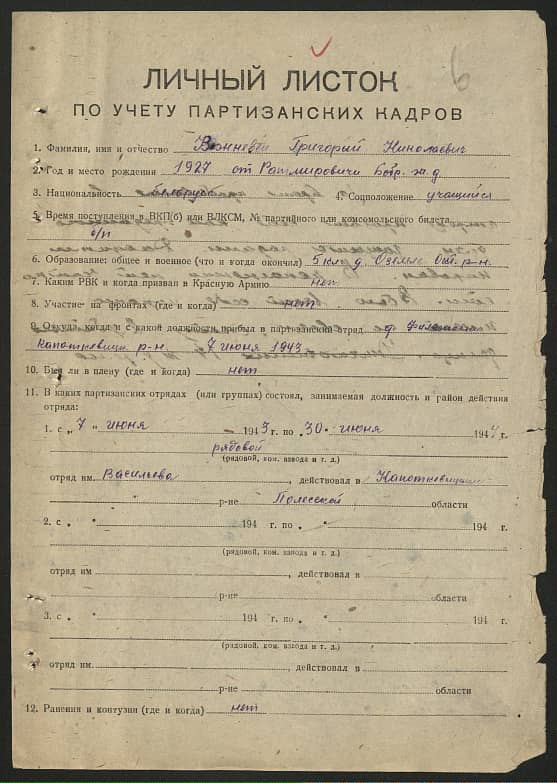 ЛИЧНЫЙ ЛИСТОК
ПО УЧЕТУ ПАРТИЗАНСКИХ КАДРОВ
1. Фамилия, имя и отчество Григорий Николаевич
2. Год и место рождения 1927 ст Ратмировичи ж. д.
3. Национальность белорус 4. Соцположение учащийся
5. Время поступления в ВКП(б) или ВЛКСМ, № партийного или комсомольского билета
б/п
6. Образование: общее и военное (что и когда окончил) 5 кл д. р-н.
7. Каким РВК и когда призван в Красную Армию нет
8. Участие на фронтах (где и когда) нет
9. Откуда, когда и с какой должности прибыл в партизанский отряд
р-н. 7 июня 1943
10. Был ли в плену (где и когда) нет
11. В каких партизанских отрядах (или группах) состоял, занимаемая должность и район действия
отряда:
1. с „7 " июня 1943 г. по „30 " июня 1944 г.
рядовой
(рядовой, ком. взвода и т. д.)
отряд им. Васильева, действовал в
р-не Полесской области
2. с „ " 194 г. по „ " 194 г.
(рядовой, ком. взвода и т. д.)
отряд им , действовал в
р-не области
3. с „ " 194 г. по „ " 194 г.
(рядовой, ком. взвода и т. д.)
отряд им. , действовал в
р-не области
12. Ранения и контузия (где и когда) нет